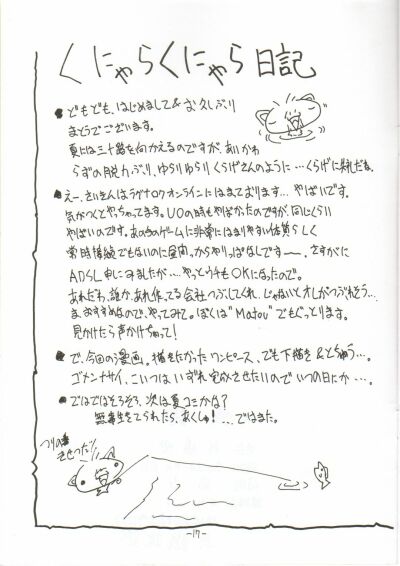 くにゃらくにゃら日記
● どもども、はじめまして&お久しぶり
まとうでございます。
夏には三十路を向かえるのですが、あいかわ
らずの脱力ぶり、ゆらりゆらりくらげさんのように…くらげに失礼だね。
● えー、さいきんはラグナロクオンラインにはまっております…やばいです。
気がつくとやっちゃってます。UOの時もやばかったのですが、同じくらい
やばいのです。あの手のゲームに非常にはまりやすい体質らしく
常時接続でもないのに
つからやりっぱなしです〜。さすがに
ADSL申こみましたが…やっとウチもOKになったので。
あれだね、誰か、あれ作ってる会社つぶしてくれ、じゃないとオレがつぶれそう…
ま、おすすめなので、やってみて。ぼくは"Matou"でもぐっとります。
見かけたら声かけちゃって!
● で、今回の漫画。描きたかったワンピース、でも下描き&とちゅう…。
ゴメンナサイ、こいつはいずれ完成させたいのでいつの日にか…。
● ではではそろそろ、次は夏コミかな?
無事生きてられたら、あくしゅ!…ではまた。
つりの
きせつだ!!
-17-